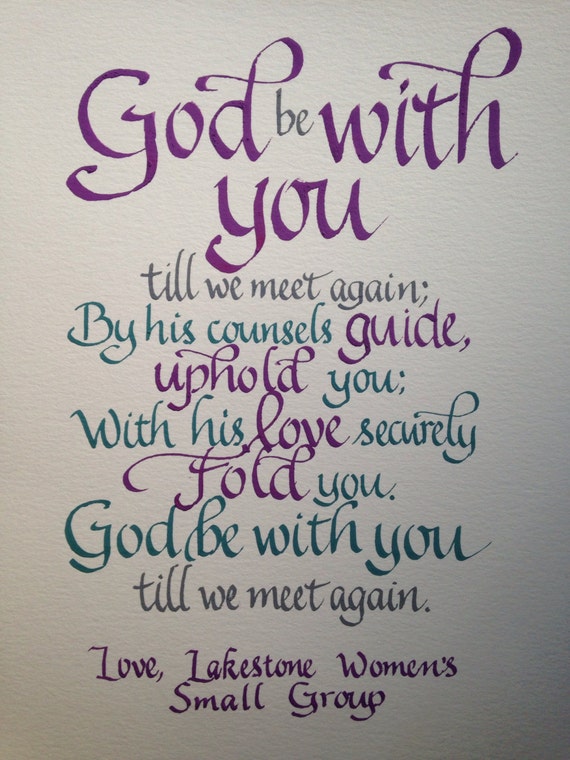 God be with
you
till we meet again;
By his counsels guide,
uphold you;
With his love securely
Fold you.
God be with you
till we meet again.
Love, Lakestone Women's
Small Group